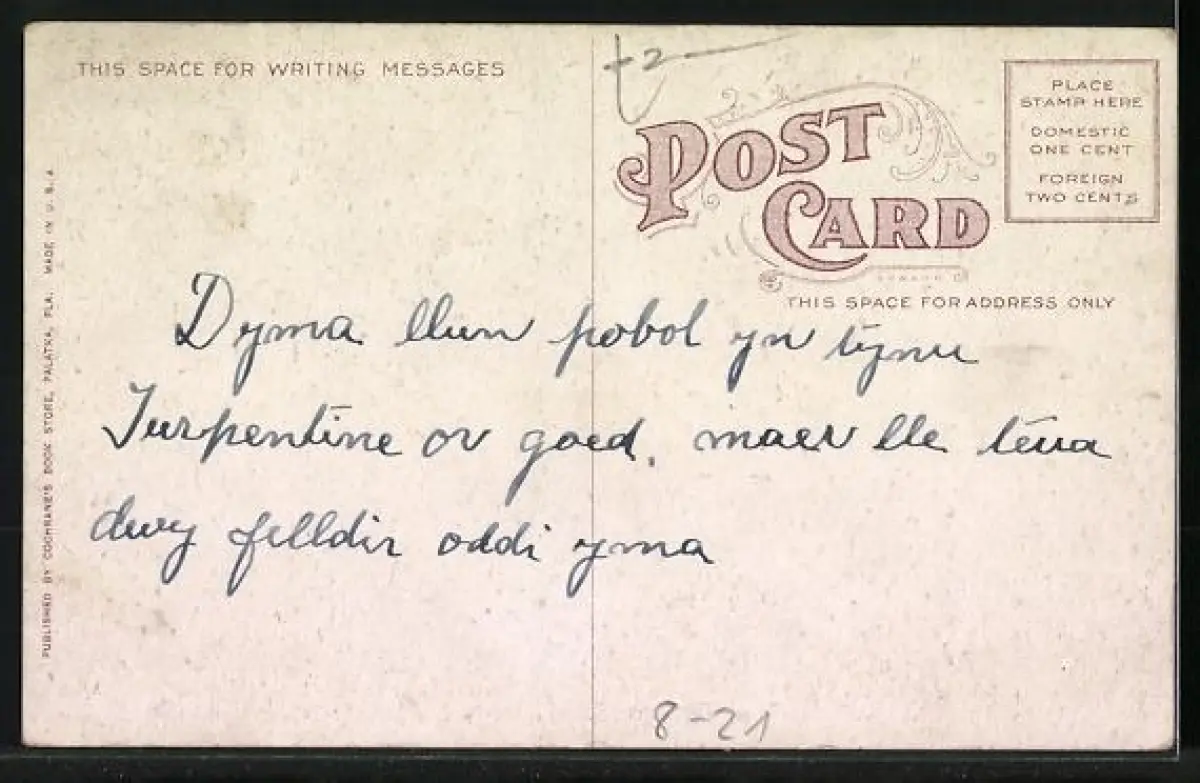 THIS SPACE FOR WRITING MESSAGES
POST
CARD
PLACE
STAMP HERE
DOMESTIC
ONE CENT
FOREIGN
TWO CENTS
THIS SPACE FOR ADDRESS ONLY
PUBLISHED BY COCHRANE'S BOOK STORE, PALATKA, FLA. MADE IN U.S.A.
Dyma llun pobol yn tynu
Turpentine or goed. maer lle teua
dwy filldir oddi yma
8-21